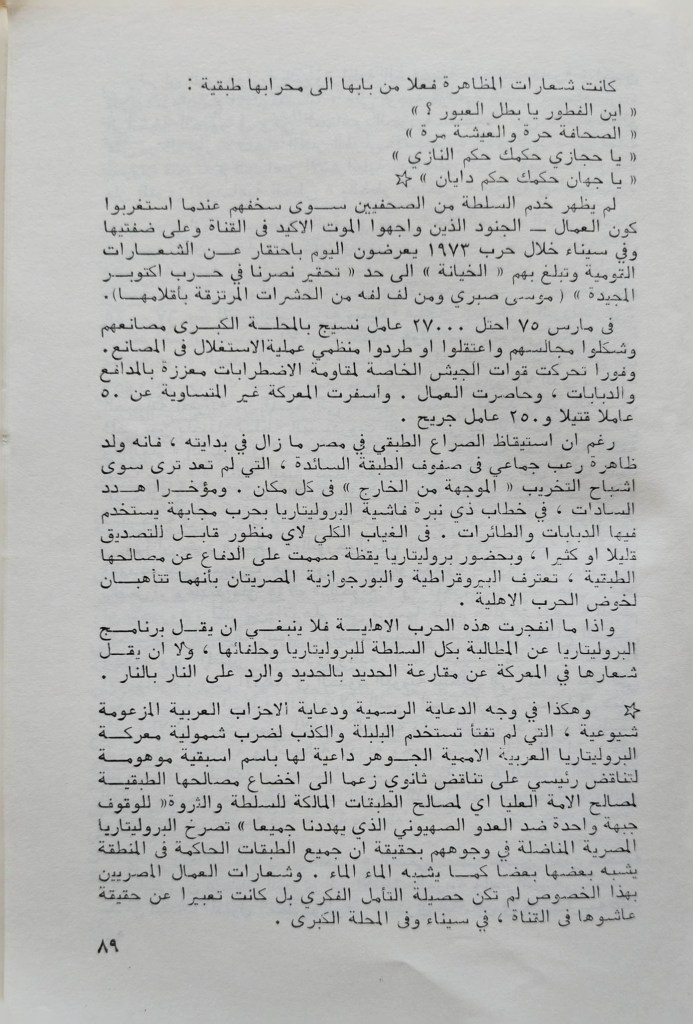 كانت شعارات المظاهرة فعلا من بابها الى محرابها طبقية :
« اين الفطور يا بطل العبور ؟ »
« الصحافة حرة والعيشة مرة »
« يا حجازي حكمك حكم النازي »
« يا جهان حكمك حكم دايان » ☆
لم يظهر خدم السلطة من الصحفيين سوى سخفهم عندما استغربوا
كون العمال — الجنود الذين واجهوا الموت الاكيد فى القناة وعلى ضفتيها
وفي سيناء خلال حرب ١٩٧٣ يعرضون اليوم باحتقار عن الشعارات
القومية وتبلغ بهم « الخيانة » الى حد « تحقير نصرنا في حرب اكتوبر
المجيدة » ( موسى صبري ومن لف لفه من الحشرات المرتزقة بأقلامها).
فى مارس ٧٥ احتل ٢٧٠٠٠ عامل نسيج بالمحلة الكبرى مصانعهم
وشكلوا مجالسهم واعتقلوا او طردوا منظمي عمليةالاستغلال فى المصانع.
وفورا تحركت قوات الجيش الخاصة لمقاومة الاضطرابات معززة بالمدافع
والدبابات ، وحاصرت العمال . وأسفرت المعركة غير المتساوية عن ٥٠
عاملا قتيلا و٢٥٠ عامل جريح .
رغم ان استيقاظ الصراع الطبقي في مصر ما زال في بدايته ، فانه ولد
ظاهرة رعب جماعي فى صفوف الطبقة السائدة ، التي لم تعد ترى سوى
اشباح التخريب « الموجهة من الخارج » فى كل مكان . ومؤخرا هدد
السادات ، في خطاب ذي نبرة فاشية البروليتاريا بحرب مجابهة يستخدم
فيها الدبابات والطائرات . فى الغياب الكلي لاي منظور قابل للتصديق
قليلا او كثيرا ، وبحضور بروليتاريا يقظة صممت على الدفاع عن مصالحها
الطبقية ، تعترف البيروقراطية والبورجوازية المصريتان بأنهما تتأهبان
لخوض الحرب الاهلية .
واذا ما انفجرت هذه الحرب الاهلية فلا ينبغي ان يقل برنامج
البروليتاريا عن المطالبة بكل السلطة للبروليتاريا وحلفائها ، ولا ان يقل
شعارها في المعركة عن مقارعة الحديد بالحديد والرد على النار بالنار .
☆ وهكذا في وجه الدعاية الرسمية ودعاية الاحزاب العربية المزعومة
شيوعية ، التي لم تفتأ تستخدم البلبلة والكذب لضرب شمولية معركة
البروليتاريا العربية الاممية الجوهر داعية لها باسم اسبقية موهومة
لتناقض رئيسي على تناقض ثانوي زعما الى اخضاع مصالحها الطبقية
لمصالح الامة العليا اي لمصالح الطبقات المالكة للسلطة والثروة« للوقوف
جبهة واحدة ضد العدو الصهيوني الذي يهددنا جميعا » تصرخ البروليتاريا
المصرية المناضلة في وجوههم بحقيقة ان جميع الطبقات الحاكمة فى المنطقة
يشبه بعضها بعضا كما يشبه الماء الماء . وشعارات العمال المصريين
بهذا الخصوص لم تكن حصيلة التأمل الفكري بل كانت تعبيرا عن حقيقة
عاشوها فى القناة ، في سيناء وفى المحلة الكبرى .
٨٩